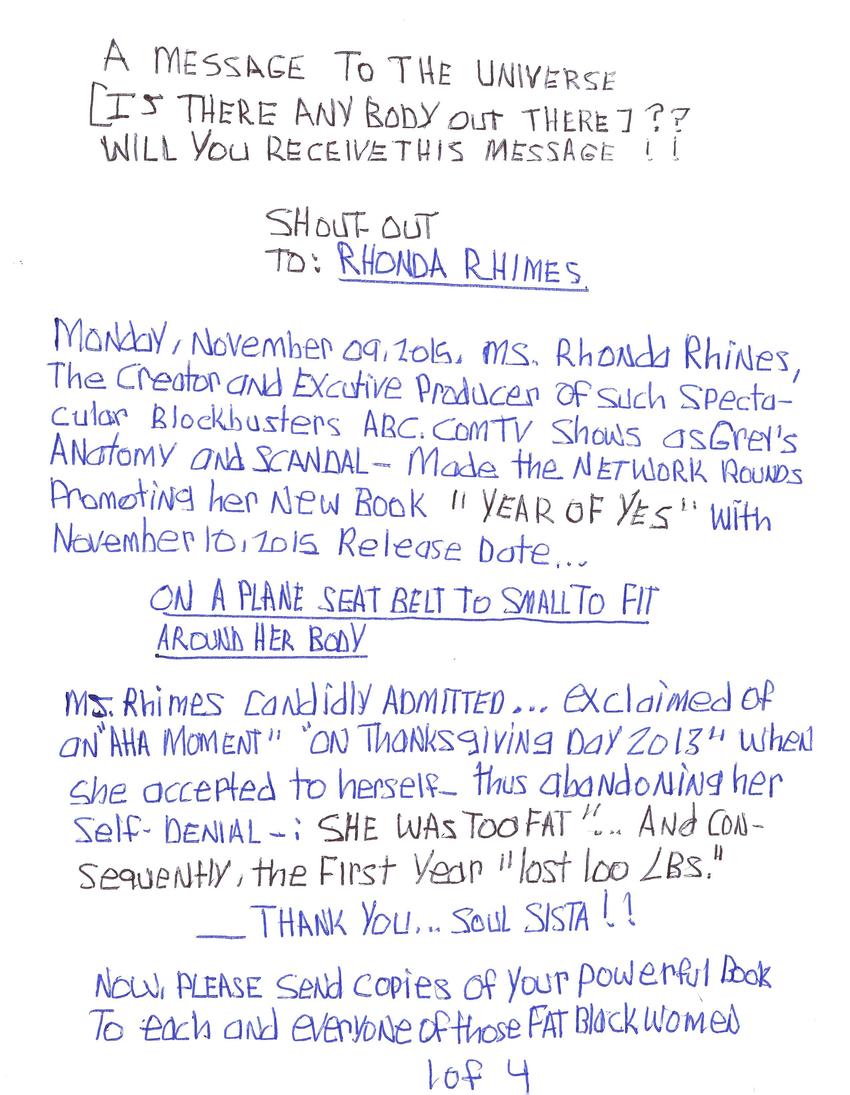 A MESSAGE TO THE UNIVERSE
[IS THERE ANY BODY OUT THERE] ??
WILL YOU RECEIVE THIS MESSAGE ! !
SHOUT OUT
TO: RHONDA RHIMES.
Monday, November 09, 2015, Ms. Rhonda Rhines,
The Creator and Excutive Producer of Such Specta-
cular Blockbusters ABC.COMTV Shows as Grey's
ANatomy and SCANDAL - Made the NETWORK ROUNDS
Promoting her New Book "YEAR OF YES" with
November 10, 2015 Release Date...
ON A PLANE SEAT BELT TO SMALL TO FIT
AROUND HER BODY
Ms. Rhimes Candidly ADMITTED... exclaimed of
an "AHA MOMENT" "ON Thanksgiving Day 2013" when
she accepted to herself - thus abandoning her
Self-DENIAL - : SHE WAS TOO FAT"... And Con-
sequently, the First Year "lost 100 LBs."
__ THANK YOU... Soul SISTA ! !
NOW, PLEASE Send copies of your powerful Book
To each and everyone of those FAT Black Women
1 of 4